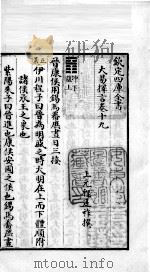 欽定四庫全書
大易擇言卷十九
上元程廷祚撰
坤下
離上
晉康侯用錫馬蕃庶晝日三接
正義
伊川程子曰晉為明盛之時大明在上而下體順附
諸侯承王之象也
紫陽朱子曰晉進也康侯安國之侯也錫馬蕃庶晝